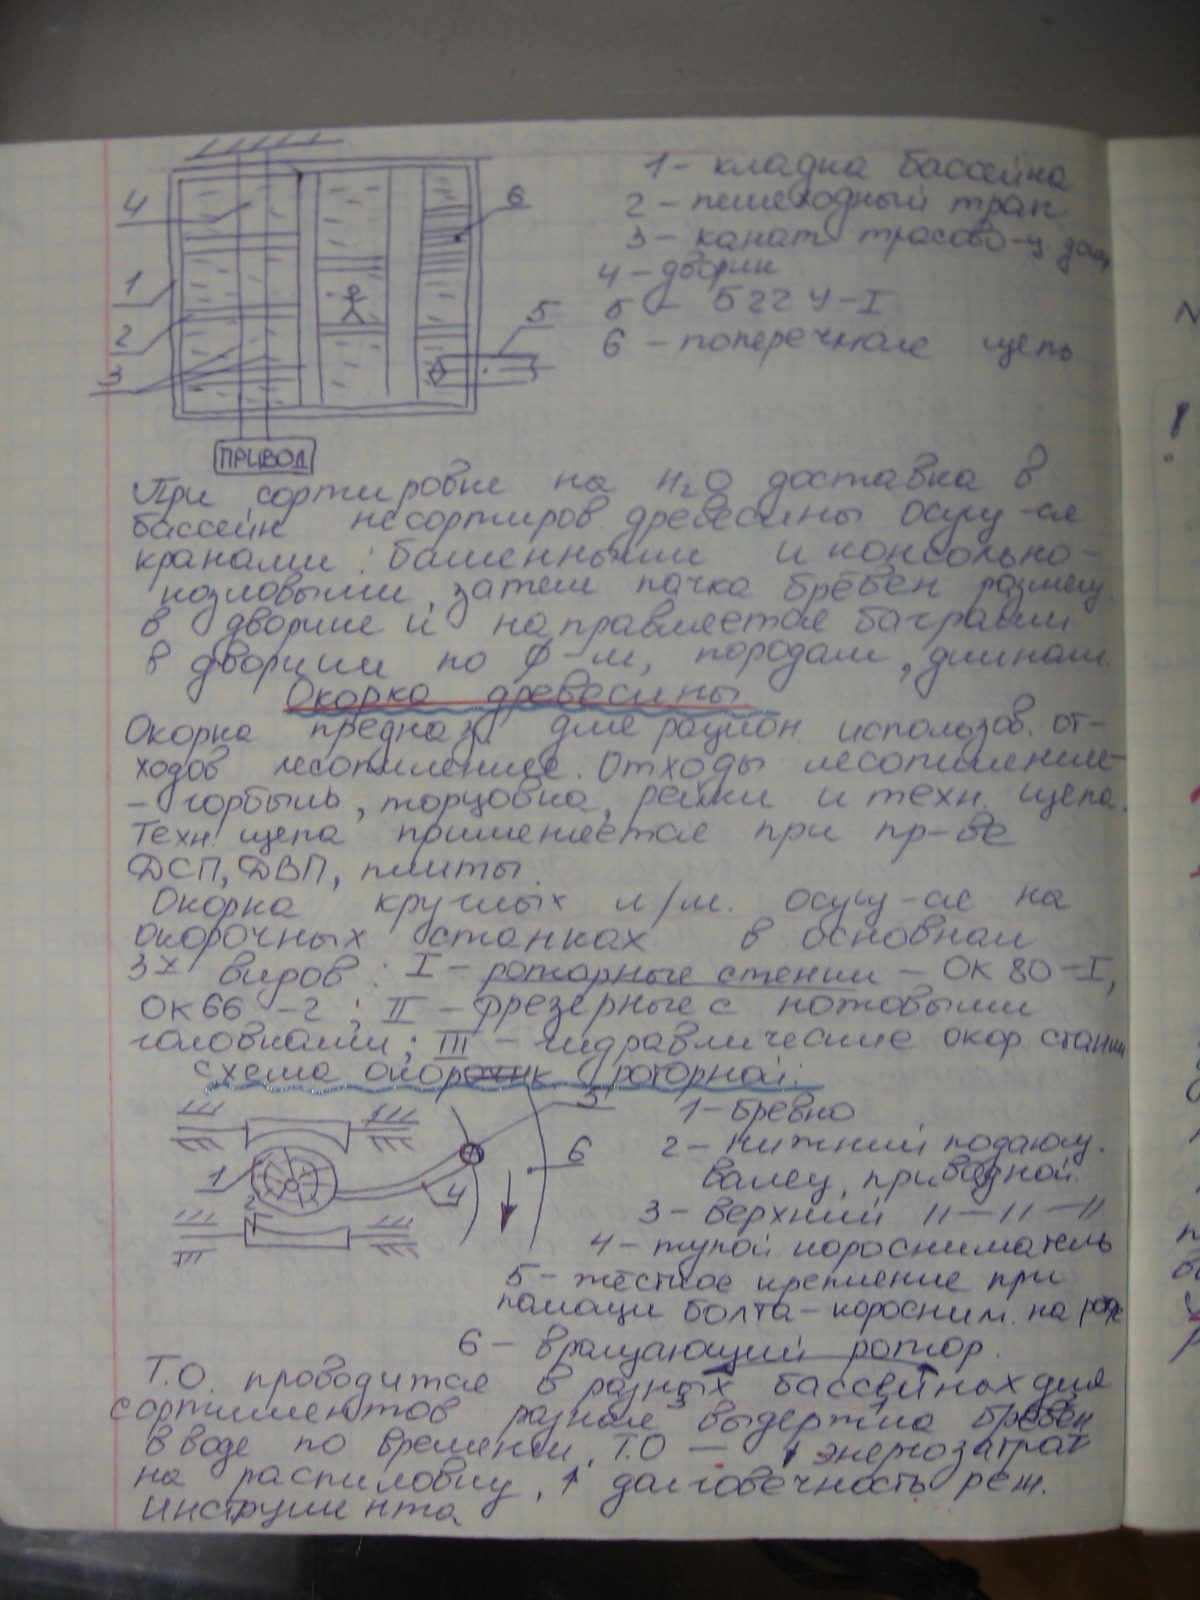 1 - кладка бассейна
2 - пешеходный трап
3 - канат трасово-ц.
4 - дворик
5 - Б22У-I
6 - поперечная цепь
4
1
2
3
6
5
ПРИВОД
При сортировке на H₂O доставка в
бассейн несортиров. древесины осущ-ся
кранами: башенными и консольно-
козловыми, затем пачка брёвен размещ.
в дворике и направляется баграми
в дворики по Ф-м, породам, длинам.
Окорка древесины
Окорка предназ. для рацион. использов. от-
ходов лесопиления. Отходы лесопиления
- горбыль, торцовка, рейки и техн. щепа.
Техн. щепа применяется при пр-ве
ДСП, ДВП, плиты.
Окорка круглых л/м. осущ-ся на
окорочных станках в основном
3х видов: I - роторные станки - ОК 80-I,
ОК66-2; II - фрезерные с ножовыми
головками; III - гидравлические окор. станки
схема роторной:
1
2
4
5
6
1 - бревно
2 - нижний подающ.
валец, приводной.
3 - верхний 11 - 11 - 11
4 - тупой коросниматель
5 - жёсткое крепление при
помощи болта - коросним. на роторе
6 - вращающий ротор.
Т.О. проводится в разных бассейнах для
сортиментов разная выдержка брёвен
в воде по времени. Т.О - ↓ энергозатрат
на распиловку, ↑ долговечность реж.
инструмента